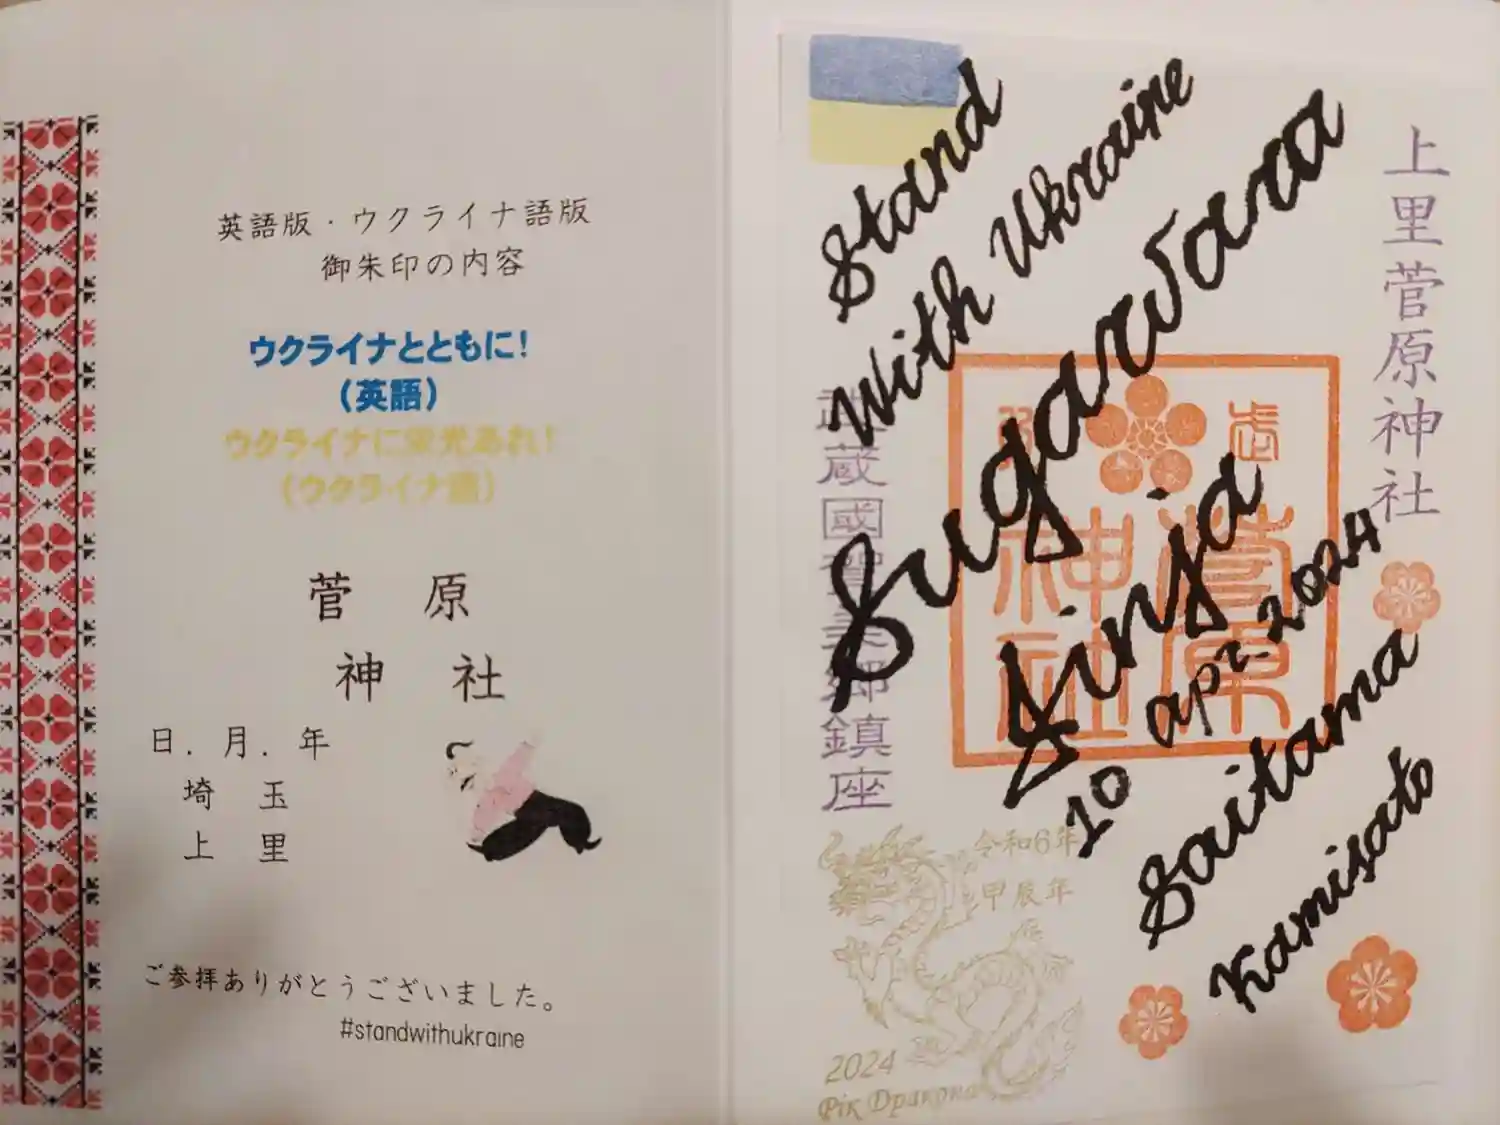 英語版・ウクライナ語版
御朱印の内容
ウクライナとともに!
(英語)
ウクライナに栄光あれ!
(ウクライナ語)
菅 原
神 社
日. 月. 年
埼 玉
上 里
ご参拝ありがとうございました。
#standwithukraine
上里菅原神社
Stand
With Ukraine
Sugawara
Jinja
10 apr. 2024
Saitama
Kamisato
菅原
神社
武蔵國賀美郷鎮座
令和6年
甲辰年
2024
Рік Дракона